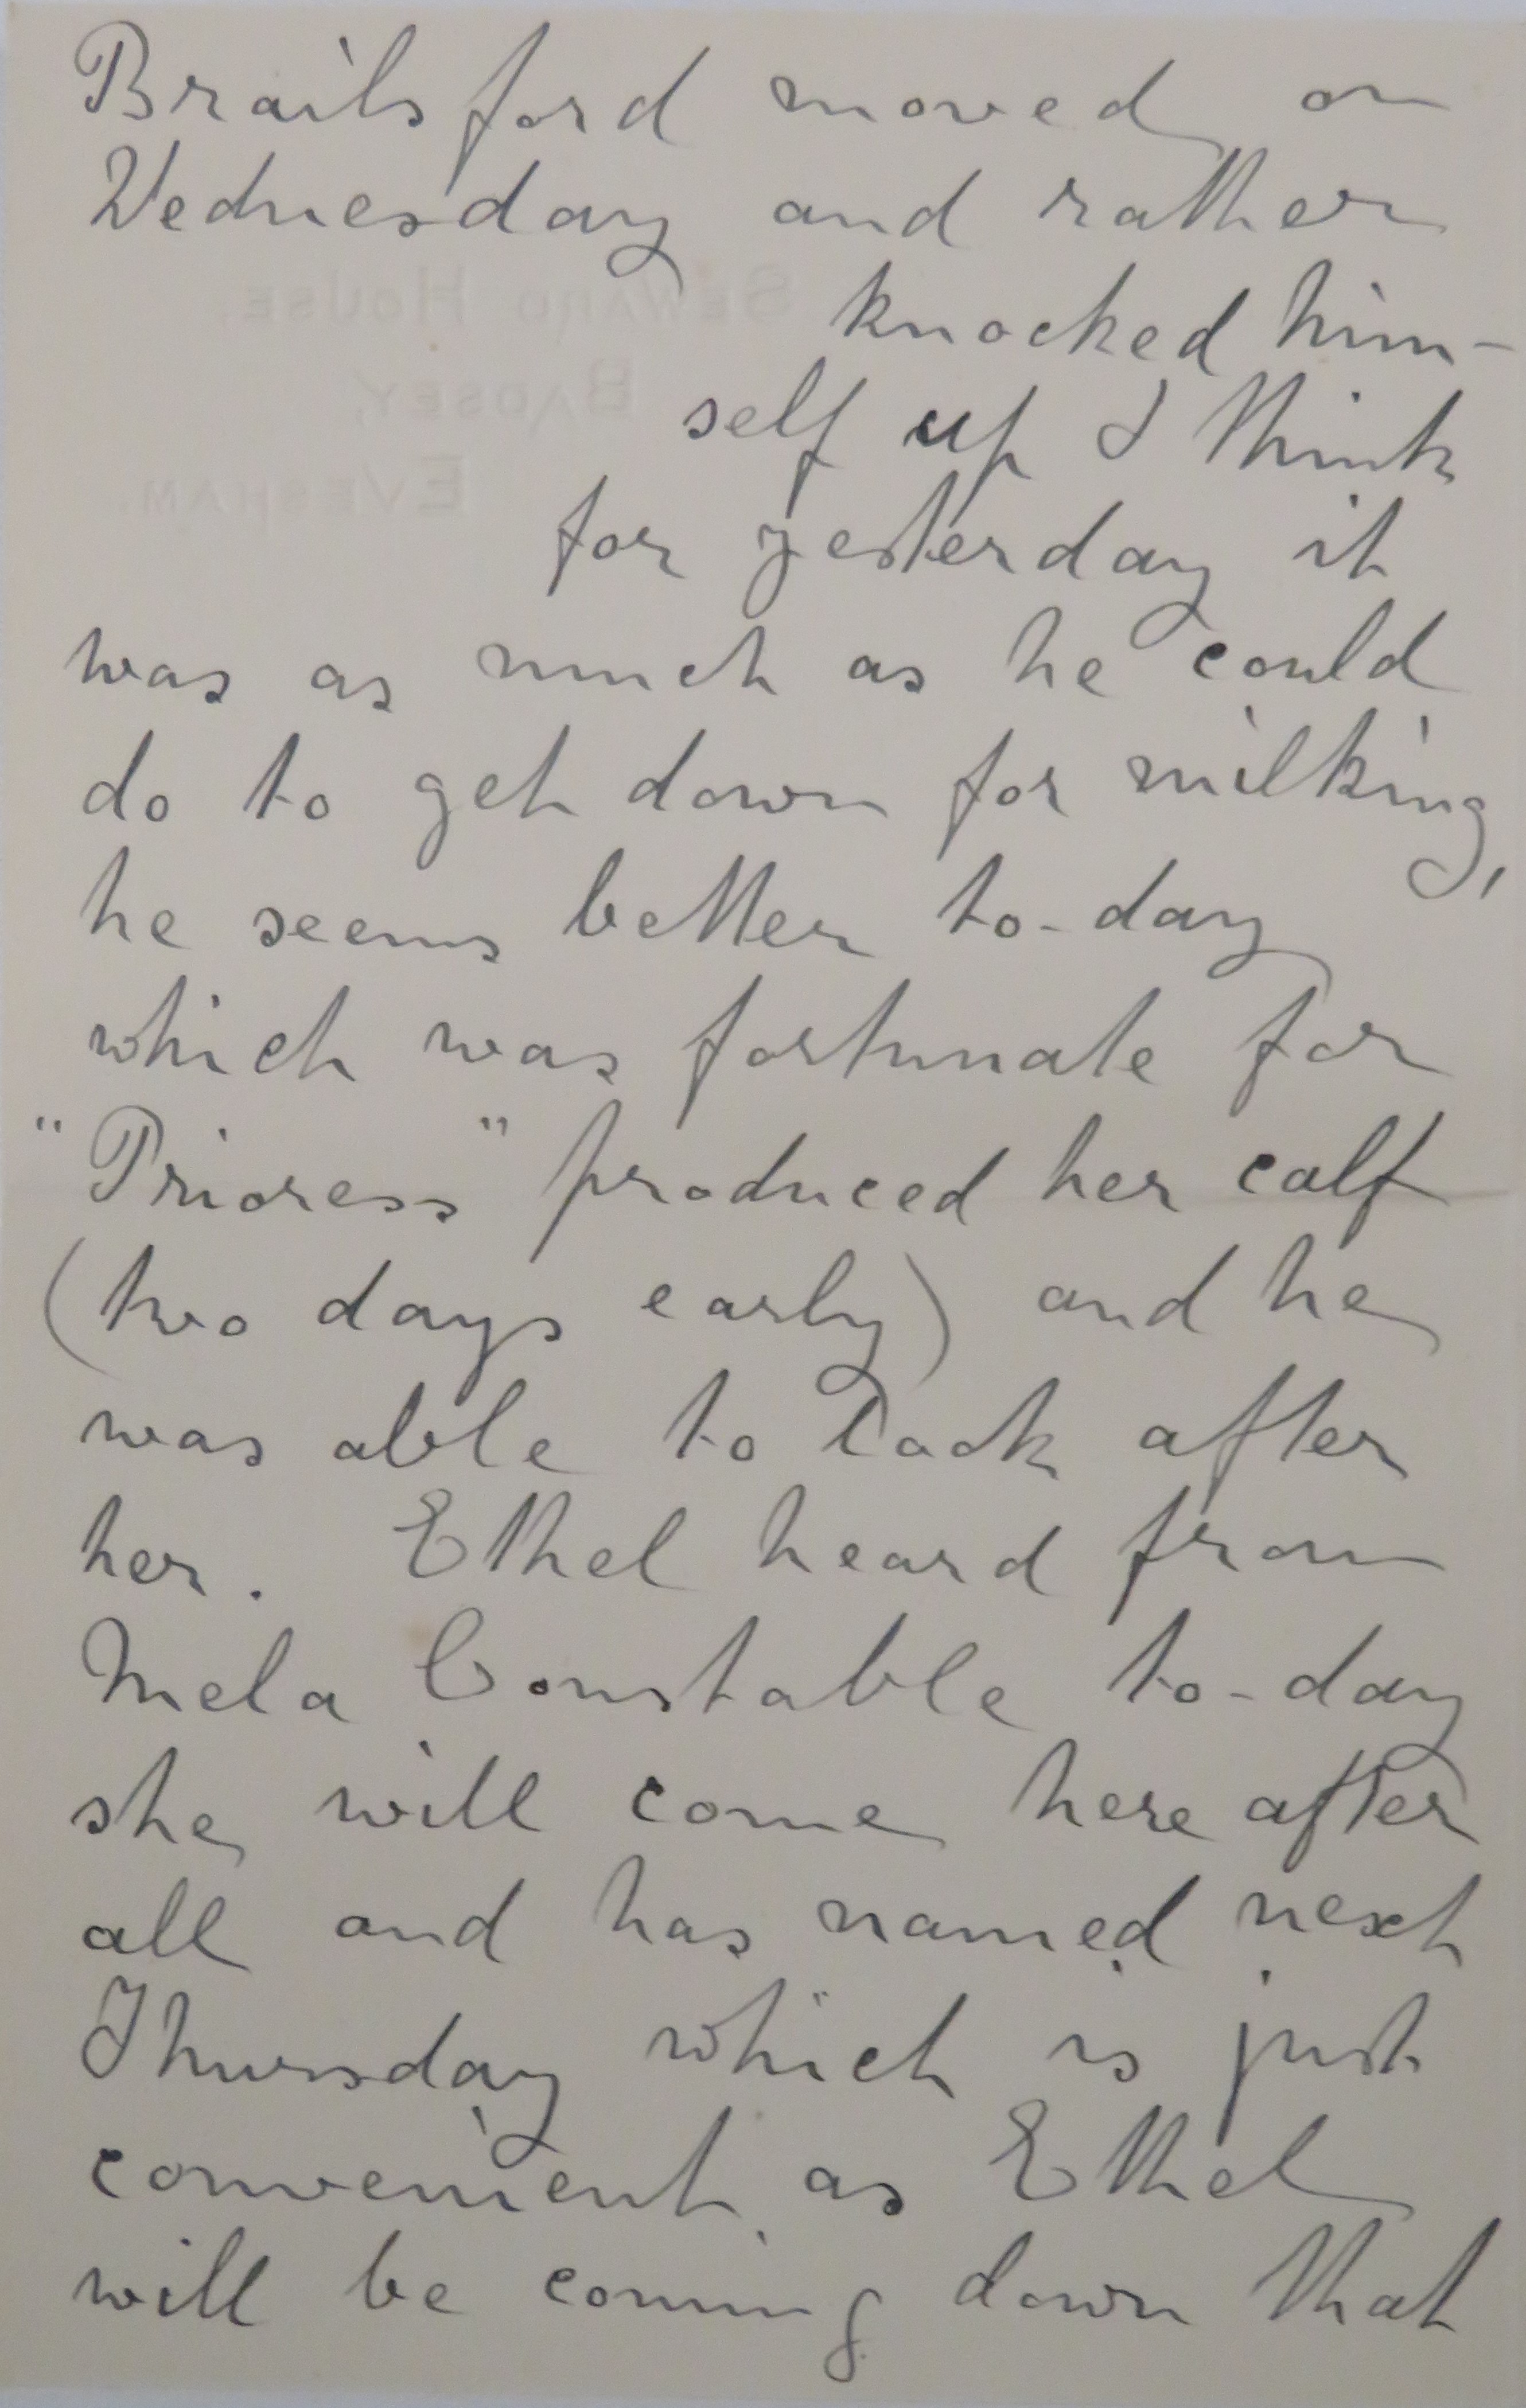 Brailsford moved on
Wednesday and rather
knocked him-
self up I think
for yesterday it
was as much as he could
do to get down for milking,
he seems better to-day
which was fortunate for
"Prioress" produced her calf
(two days early) and he
was able to look after
her. Ethel heard from
Mela Constable to-day
she will come here after
all and has named next
Thursday which is just
convenient as Ethel
will be coming down that
SEWARD HOUSE,
BADSEY,
EVESHAM.